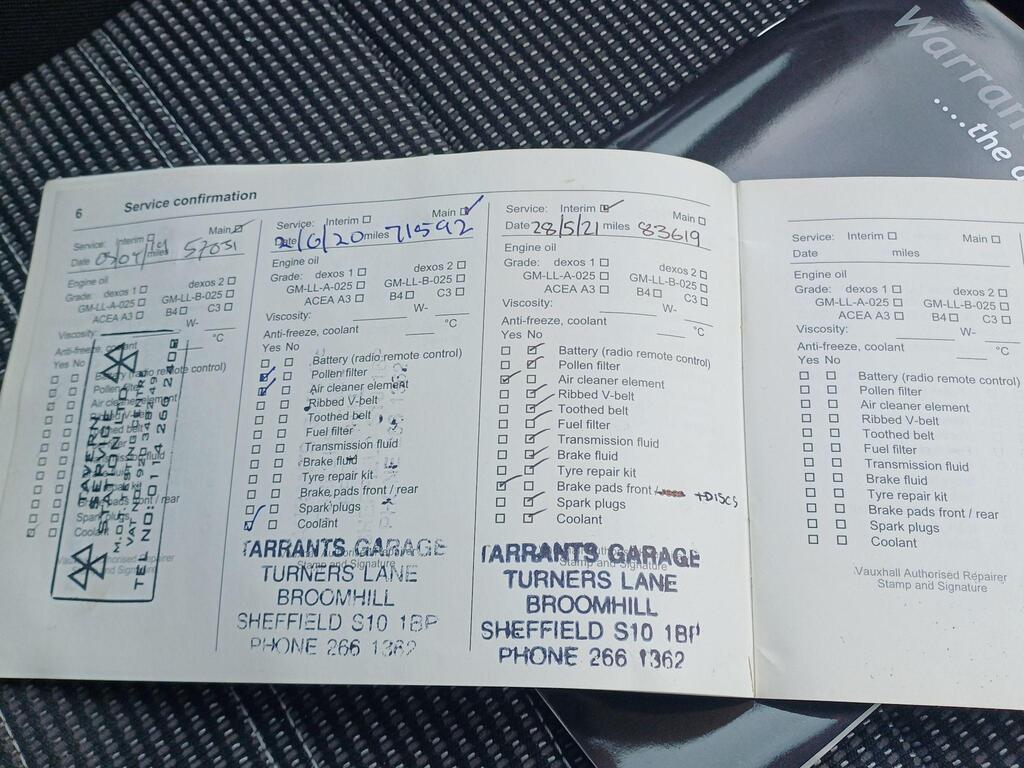 Warran
....the
6 Service confirmation
Service: Interim Main
Date miles 57051
Engine oil
Grade: dexos 1 dexos 2
GM-LL-A-025 GM-LL-B-025
ACEA A3 B4 C3
Viscosity: W-
Anti-freeze, coolant °C
Yes No
Battery (radio remote control)
Pollen filter
Air cleaner element
Ribbed V-belt
TAVERN
SERVICE
STATION LTD
M.O.T. TESTING CENTRE
TEL NO: 0114 266 2408
Service: Interim Main
Date 2/6/20 miles 71592
Engine oil
Grade: dexos 1 dexos 2
GM-LL-A-025 GM-LL-B-025
ACEA A3 B4 C3
Viscosity: W-
Anti-freeze, coolant °C
Yes No
Battery (radio remote control)
Pollen filter
Air cleaner element
Ribbed V-belt
Toothed belt
Fuel filter
Transmission fluid
Brake fluid
Tyre repair kit
Brake pads front / rear
Spark plugs
Coolant
Stamp and Signature
TARRANTS GARAGE
TURNERS LANE
BROOMHILL
SHEFFIELD S10 1BP
PHONE 266 1362
Service: Interim Main
Date 28/5/21 miles 83619
Engine oil
Grade: dexos 1 dexos 2
GM-LL-A-025 GM-LL-B-025
ACEA A3 B4 C3
Viscosity: W-
Anti-freeze, coolant °C
Yes No
Battery (radio remote control)
Pollen filter
Air cleaner element
Ribbed V-belt
Toothed belt
Fuel filter
Transmission fluid
Brake fluid
Tyre repair kit
Brake pads front / +DISCS
Spark plugs
Coolant
Stamp and Signature
TARRANTS GARAGE
TURNERS LANE
BROOMHILL
SHEFFIELD S10 1BP
PHONE 266 1362
Service: Interim Main
Date miles
Engine oil
Grade: dexos 1 dexos 2
GM-LL-A-025 GM-LL-B-025
ACEA A3 B4 C3
Viscosity: W-
Anti-freeze, coolant °C
Yes No
Battery (radio remote control)
Pollen filter
Air cleaner element
Ribbed V-belt
Toothed belt
Fuel filter
Transmission fluid
Brake fluid
Tyre repair kit
Brake pads front / rear
Spark plugs
Coolant
Vauxhall Authorised Repairer
Stamp and Signature